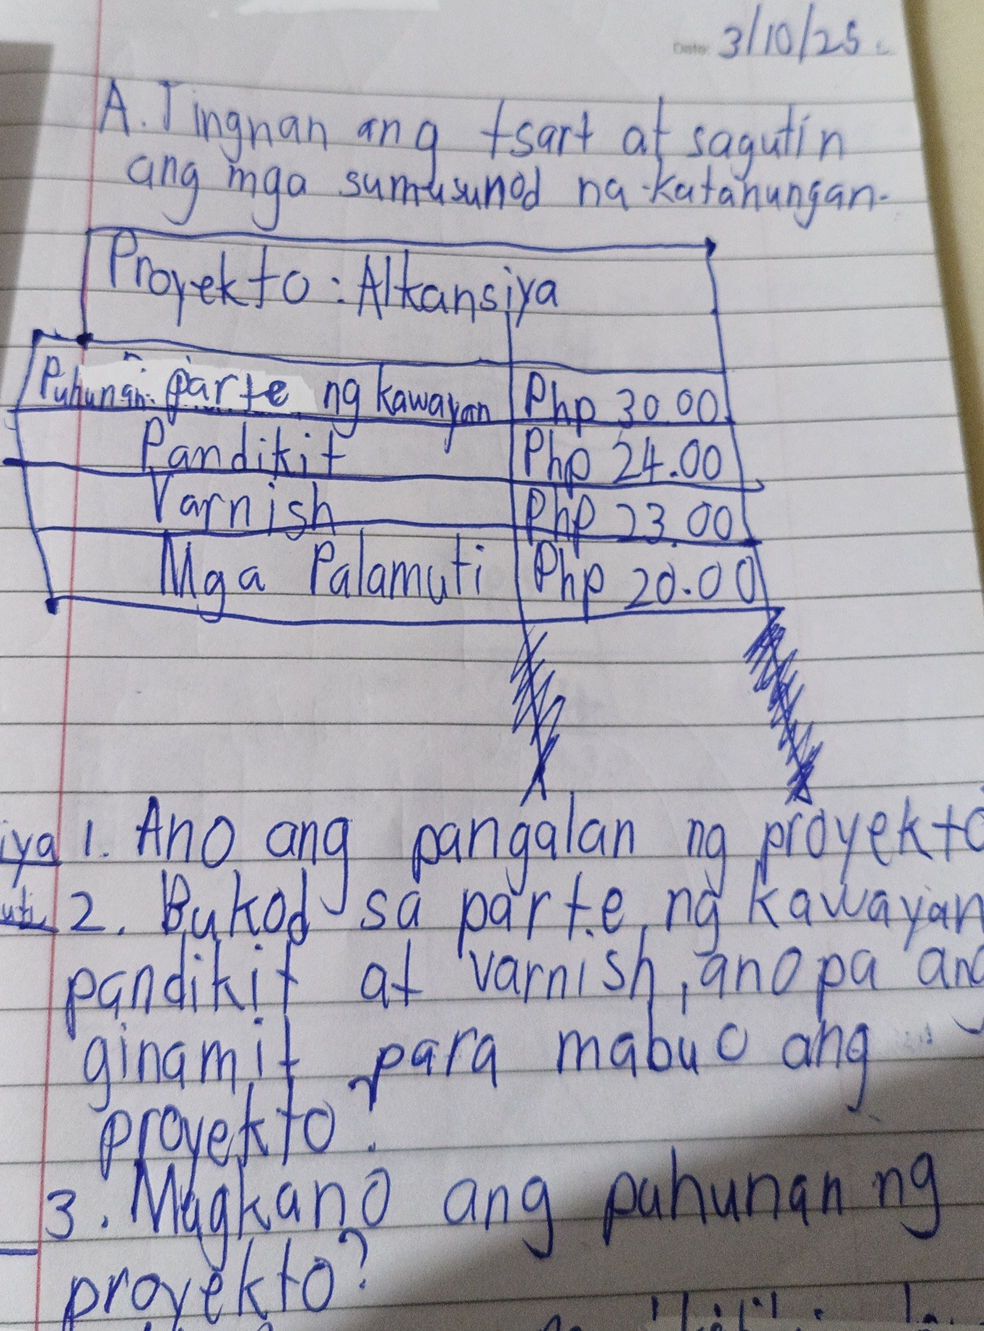 Date: 3/10/25
A. Tingnan ang tsart at sagutin
ang mga sumusunod na katanungan.
Proyekto: Alkansiya
Puhunan: parte ng kawayan Php 30.00
Pandikit Php 24.00
Varnish Php 23.00
Mga Palamuti Php 20.00
iya 1. Ano ang pangalan ng proyekto
2. Bukod sa parte ng kawayan
pandikit at varnish, ano pa ang
ginamit para mabuo ang
proyekto?
3. Magkano ang puhunan ng
proyekto?